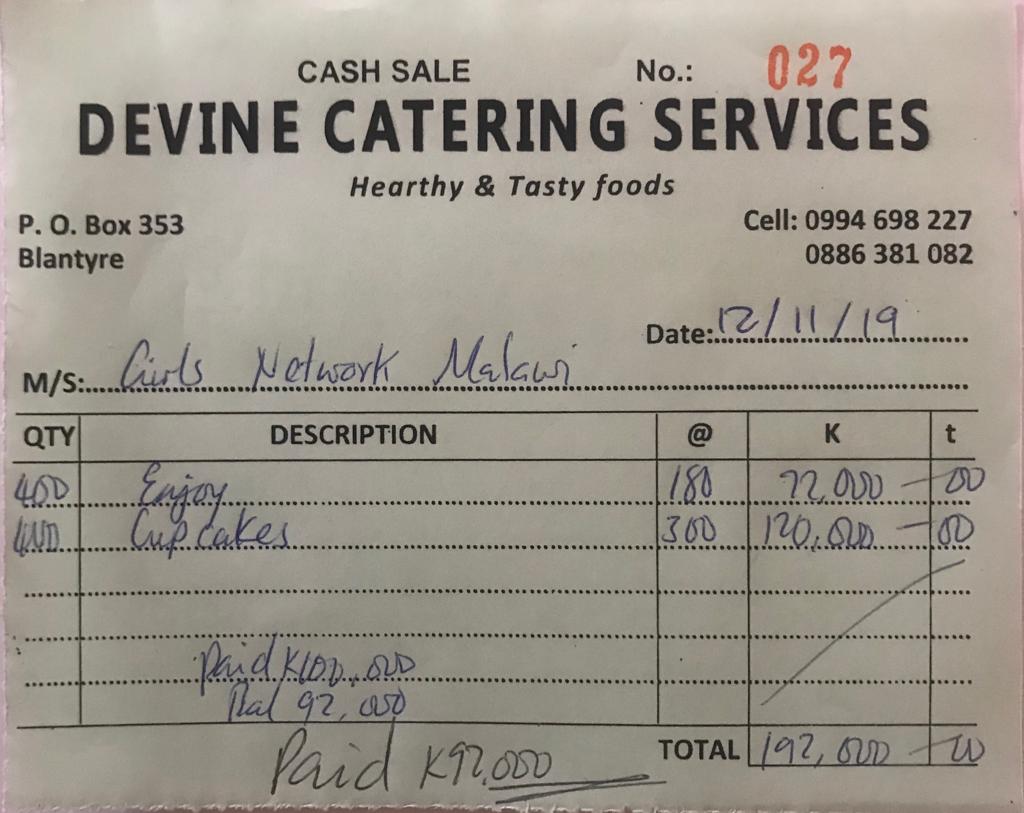 CASH SALE No.: 027
DEVINE CATERING SERVICES
Hearthy & Tasty foods
P. O. Box 353 Cell: 0994 698 227
Blantyre 0886 381 082
Date: 12/11/19
M/S: Girls Network Malawi
QTY DESCRIPTION @ K t
400 Enjoy 180 72,000 - 00
400 Cup cakes 300 120,000 - 00
Paid K100,000
Bal 92,000
TOTAL 192,000 - 00
Paid K92,000